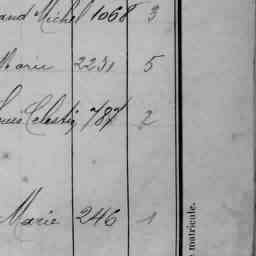 and Michel 1068 3
Marie 2231 5
Louis Celestin 787 2
Marie 246 1
matricule.